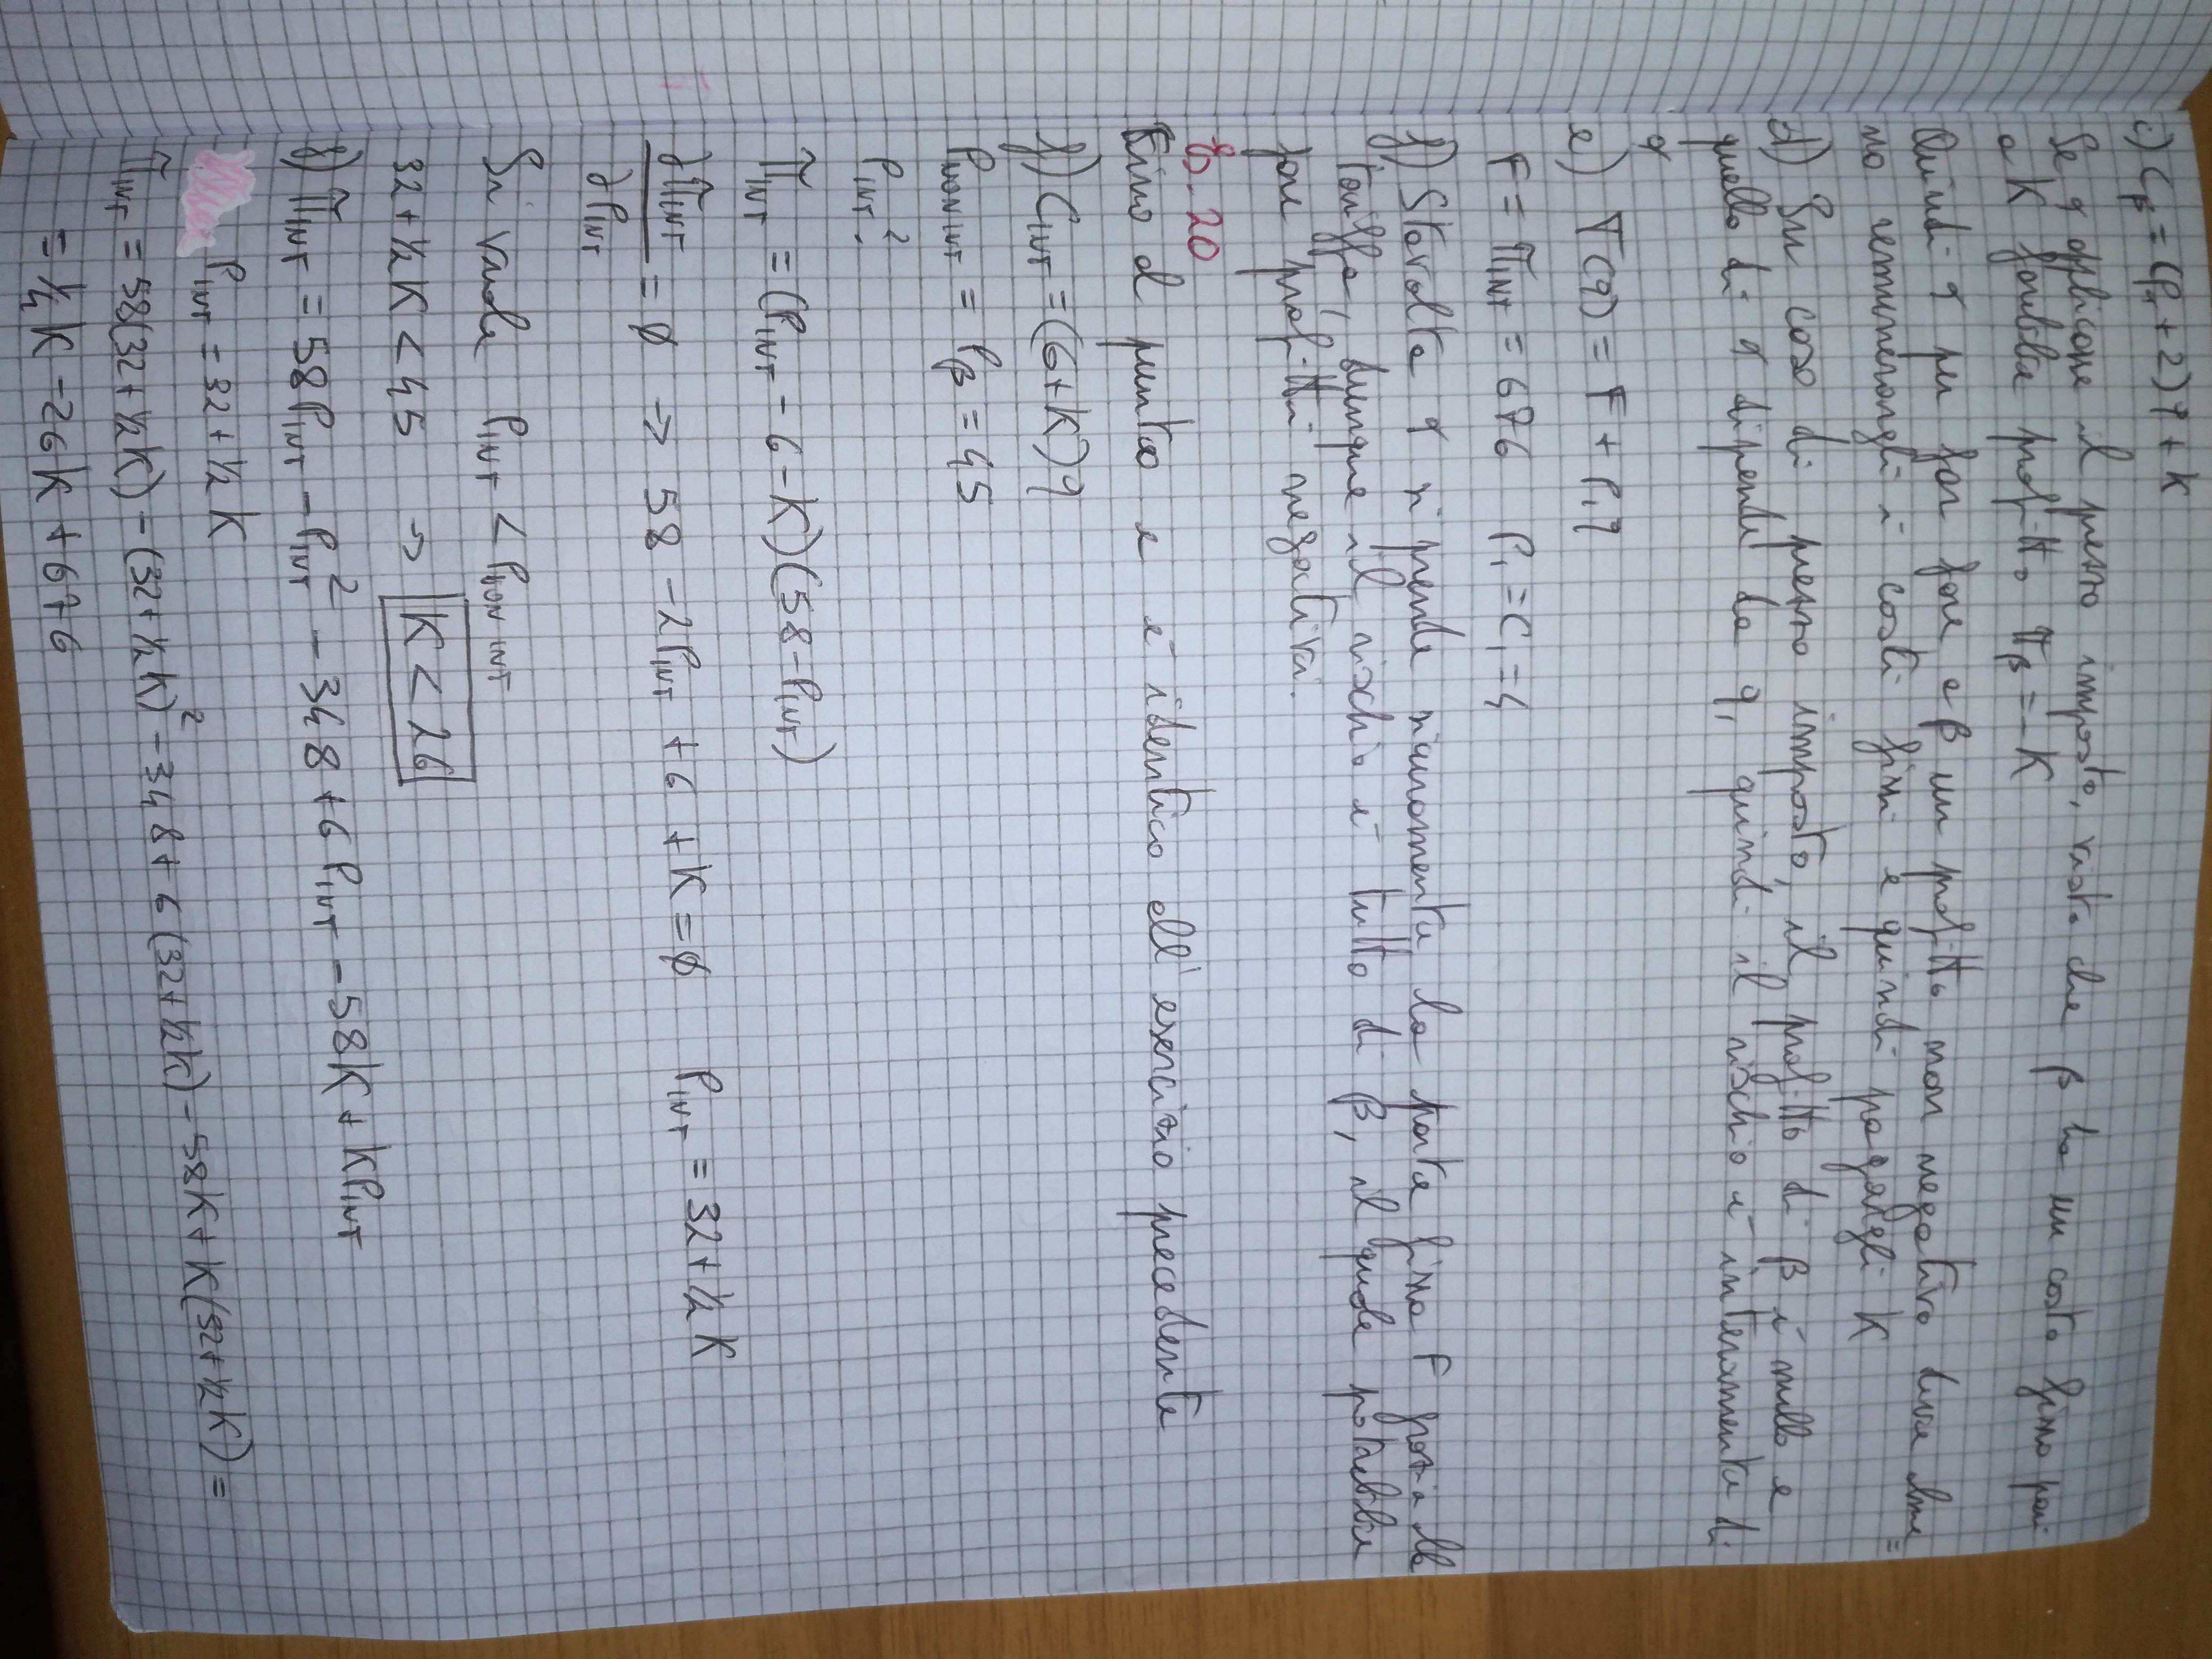 c) Cβ = (P1 + 2) q + K
Se α applicasse il prezzo imposto, visto che β ha un costo fisso pari
a K farebbe profitto πβ = -K
Quindi α per far fare a β un profitto non negativo deve alme=
no remunerargli i costi fissi e quindi pagargli K
d) In caso di prezzo imposto, il profitto di β è nullo e
quello di α dipende da q, quindi il rischio è interamente di
α
e) T(q) = F + P1 q
F = πINT = 676 P1 = C1 = 4
f) Stavolta α si prende sicuramente la parte fissa F grazie alla
tariffa, dunque il rischio è tutto di β, il quale potrebbe
fare profitti negativi.
Es. 20
Fino al punto e è identico all'esercizio precedente
f) CINT = (6+K) q
PNON INT = Pβ = 45
PINT?
πINT = (PINT - 6 - K)(58 - PINT)
∂πINT/∂PINT = ∅ → 58 - 2PINT + 6 + K = ∅ PINT = 32 + ½ K
Si vuole PINT < PNON INT
32 + ½ K < 45 → K < 26
g) πINT = 58 PINT - PINT² - 348 + 6 PINT - 58K + K PINT
PINT = 32 + ½ K
πINT = 58(32 + ½ K) - (32 + ½ K)² - 348 + 6 (32 + ½ K) - 58K + K(32 + ½ K) =
= ¼ K - 26K + 676